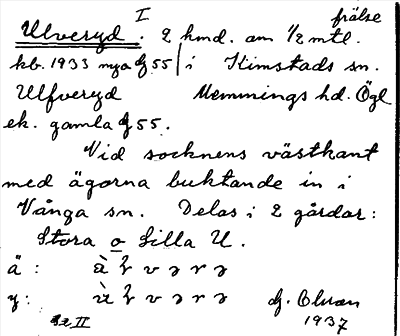 I frälse
Ulveryd. 2 hmd. am 1/2 mtl.
kb. 1933 nya 55 i Kimstads sn.
Ulfveryd Memmings hd. Ögl
ek. gamla 55.
Vid socknens västkant
med ägorna buktande in i
Vånga sn. Delas i 2 gårdar:
Stora o Lilla U.
ä:
y:
Se II 1937